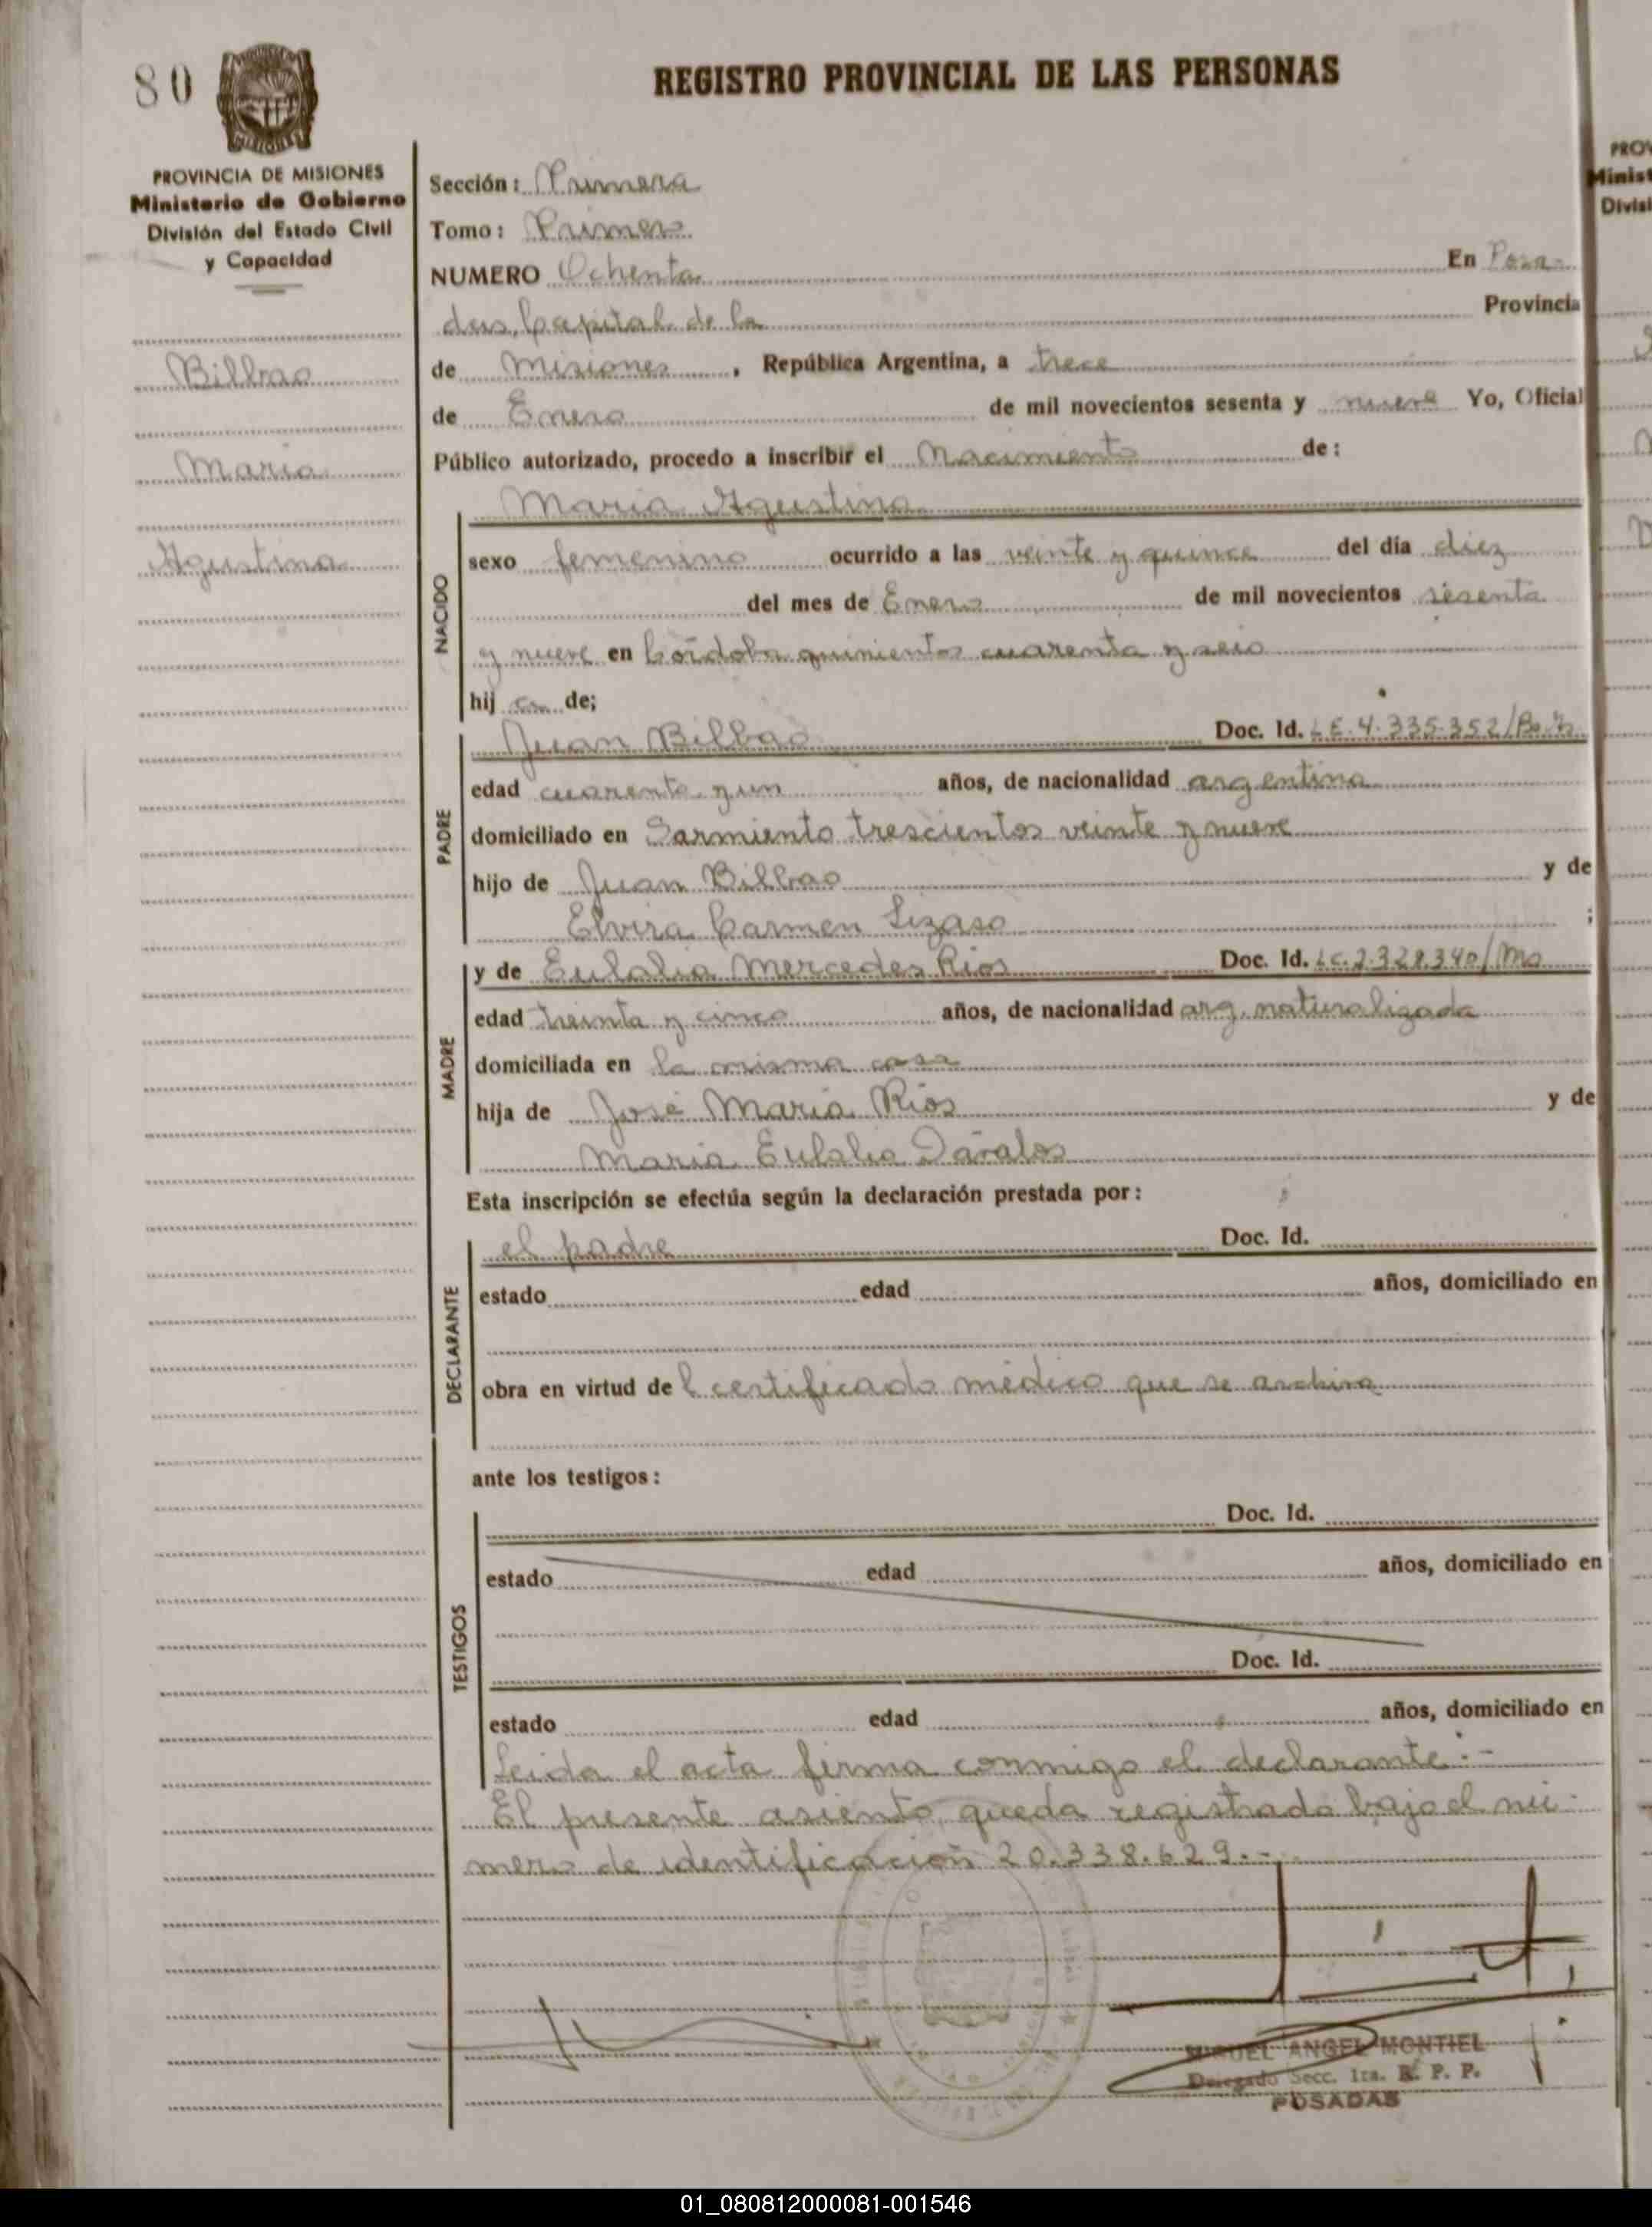 80
REGISTRO PROVINCIAL DE LAS PERSONAS
PROVINCIA DE MISIONES
Ministerio de Gobierno
División del Estado Civil
y Capacidad
Bilbao
Maria
Agustina
Sección: Primera
Tomo: Primero
NUMERO Ochenta En Posa-
das, Capital de la Provincia
de Misiones, República Argentina, a trece
de Enero de mil novecientos sesenta y nueve Yo, Oficial
Público autorizado, procedo a inscribir el Nacimiento de:
NACIDO
Maria Agustina
sexo femenino ocurrido a las veinte y quince del día diez
del mes de Enero de mil novecientos sesenta
y nueve en Córdoba quinientos cuarenta y seis
hij a de;
PADRE
Juan Bilbao Doc. Id. L.E. 4.335.352/
edad cuarenta y un años, de nacionalidad argentina
domiciliado en Sarmiento trescientos veinte y nueve
hijo de Juan Bilbao y de
Elvira Carmen Lizaso ;
MADRE
y de Eulalia Mercedes Rios Doc. Id. L.C. 2.328.340/Mo
edad treinta y cinco años, de nacionalidad arg. naturalizada
domiciliada en la misma casa
hija de José Maria Rios y de
Maria Eulalia Dávalos
Esta inscripción se efectúa según la declaración prestada por:
DECLARANTE
el padre Doc. Id.
estado edad años, domiciliado en
obra en virtud de l certificado médico que se archiva
ante los testigos:
TESTIGOS
Doc. Id.
estado edad años, domiciliado en
Doc. Id.
estado edad años, domiciliado en
Leida el acta firma conmigo el declarante.-
El presente asiento queda registrado bajo el nú-
mero de identificación 20.338.629.-
MIGUEL ANGEL MONTIEL
Delegado Secc. 1ra. R. P. P.
POSADAS
01_080812000081-001546